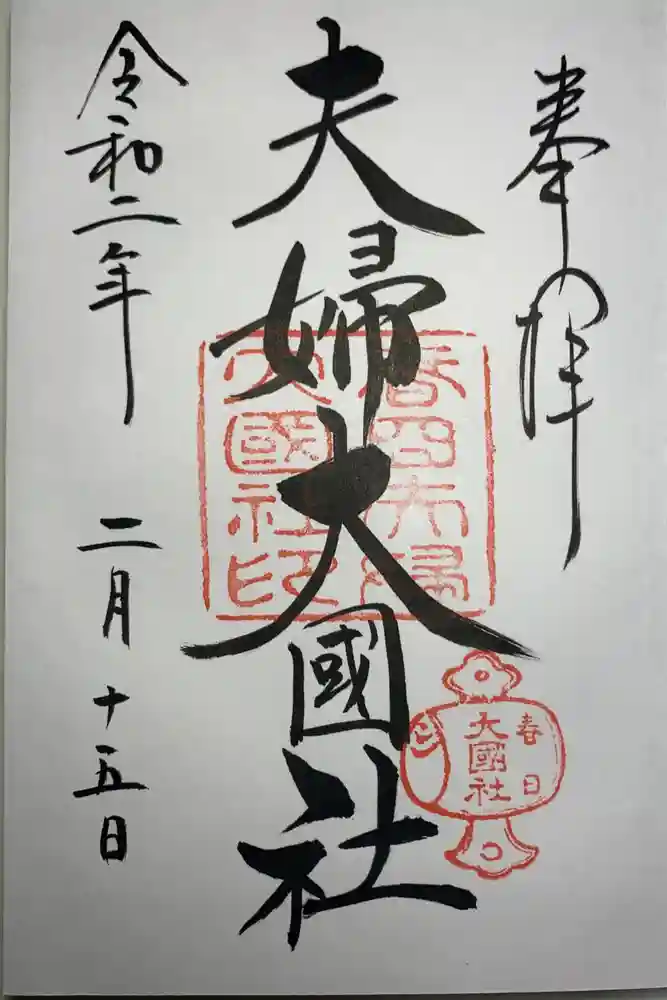 奉拝
夫婦大國社
春日夫婦
大國社印
春日
大國社
令和二年 二月十五日